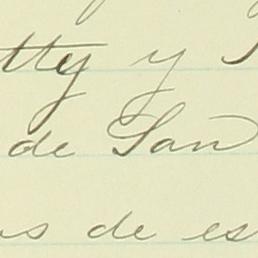 tty y
de San
as de es